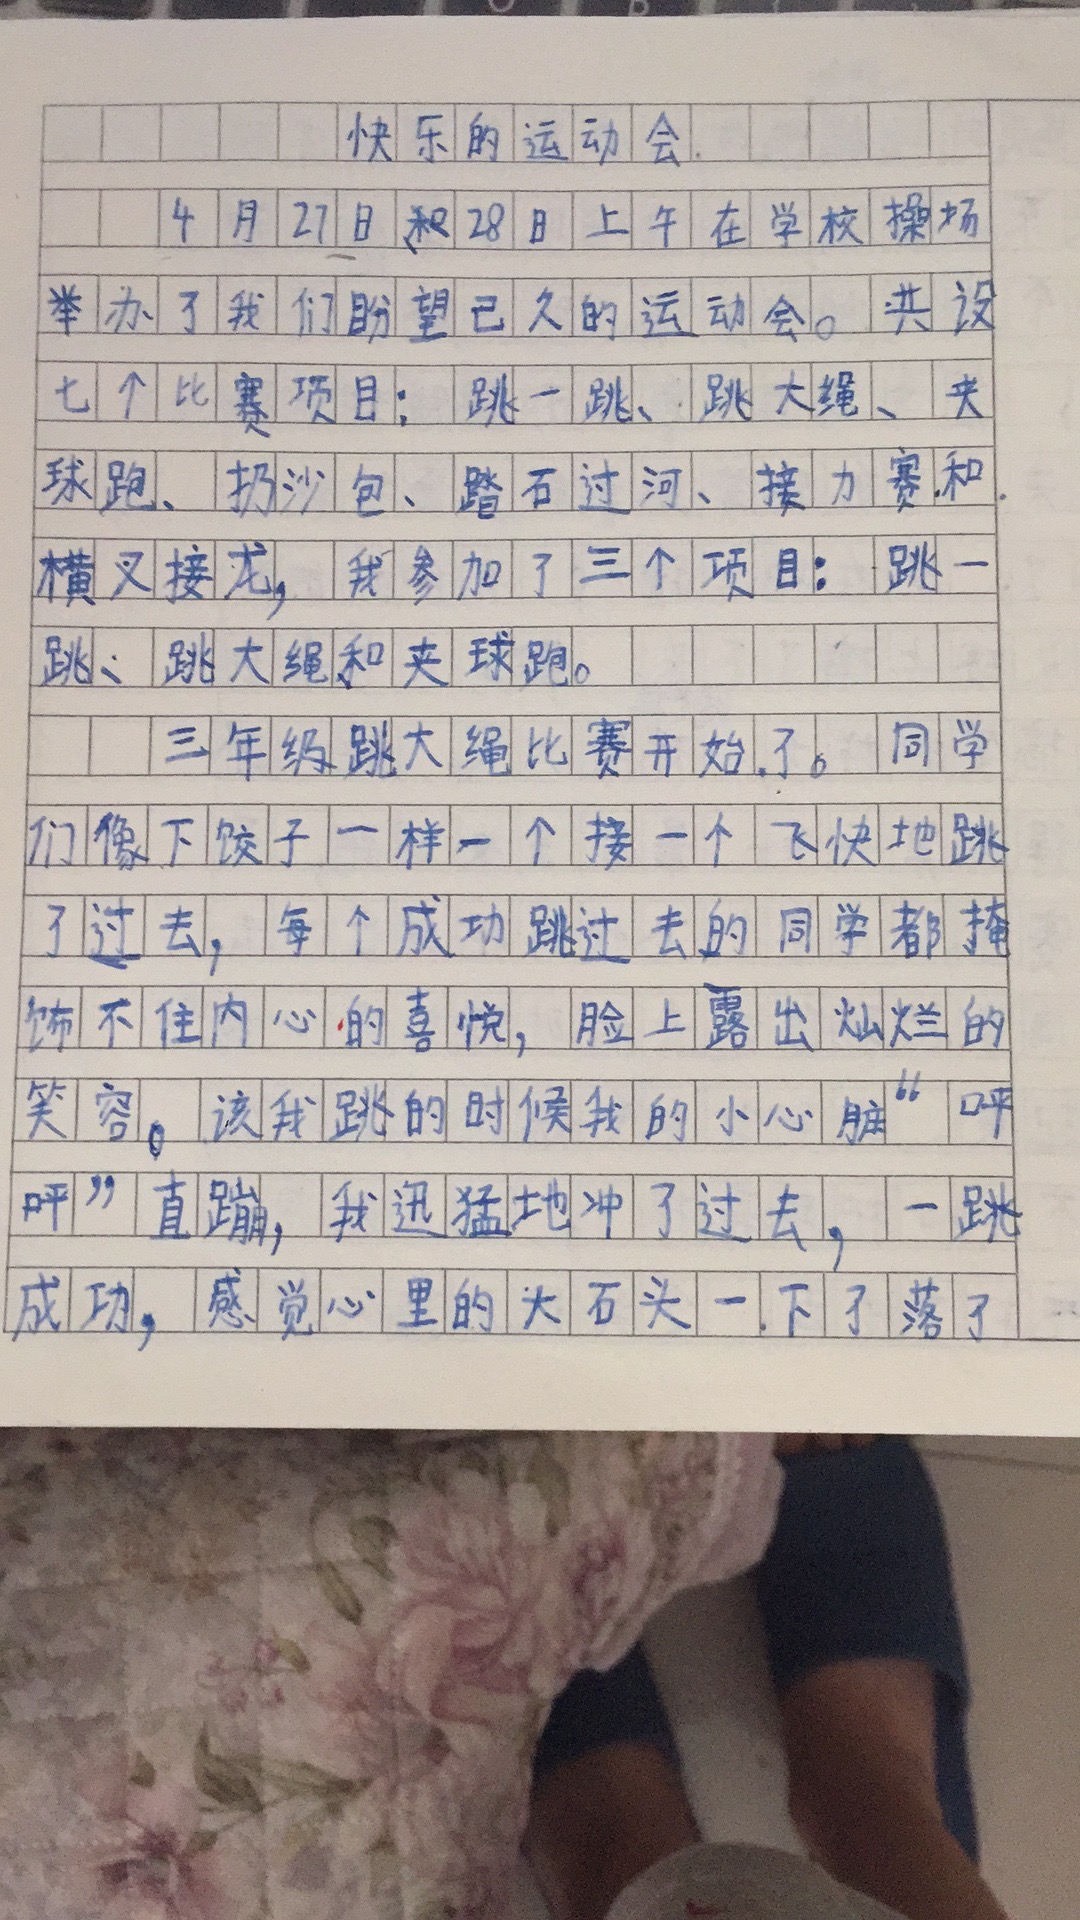 快乐的运动会
4月27日和28日上午在学校操场
举办了我们盼望已久的运动会。共设
七个比赛项目：跳一跳、跳大绳、夹
球跑、扔沙包、踏石过河、接力赛和
横叉接龙，我参加了三个项目：跳一
跳、跳大绳和夹球跑。
三年级跳大绳比赛开始了。同学
们像下饺子一样一个接一个飞快地跳
了过去，每个成功跳过去的同学都掩
饰不住内心的喜悦，脸上露出灿烂的
笑容。该我跳的时候我的小心脏“呯
呯”直蹦，我迅猛地冲了过去，一跳
成功，感觉心里的大石头一下了落了